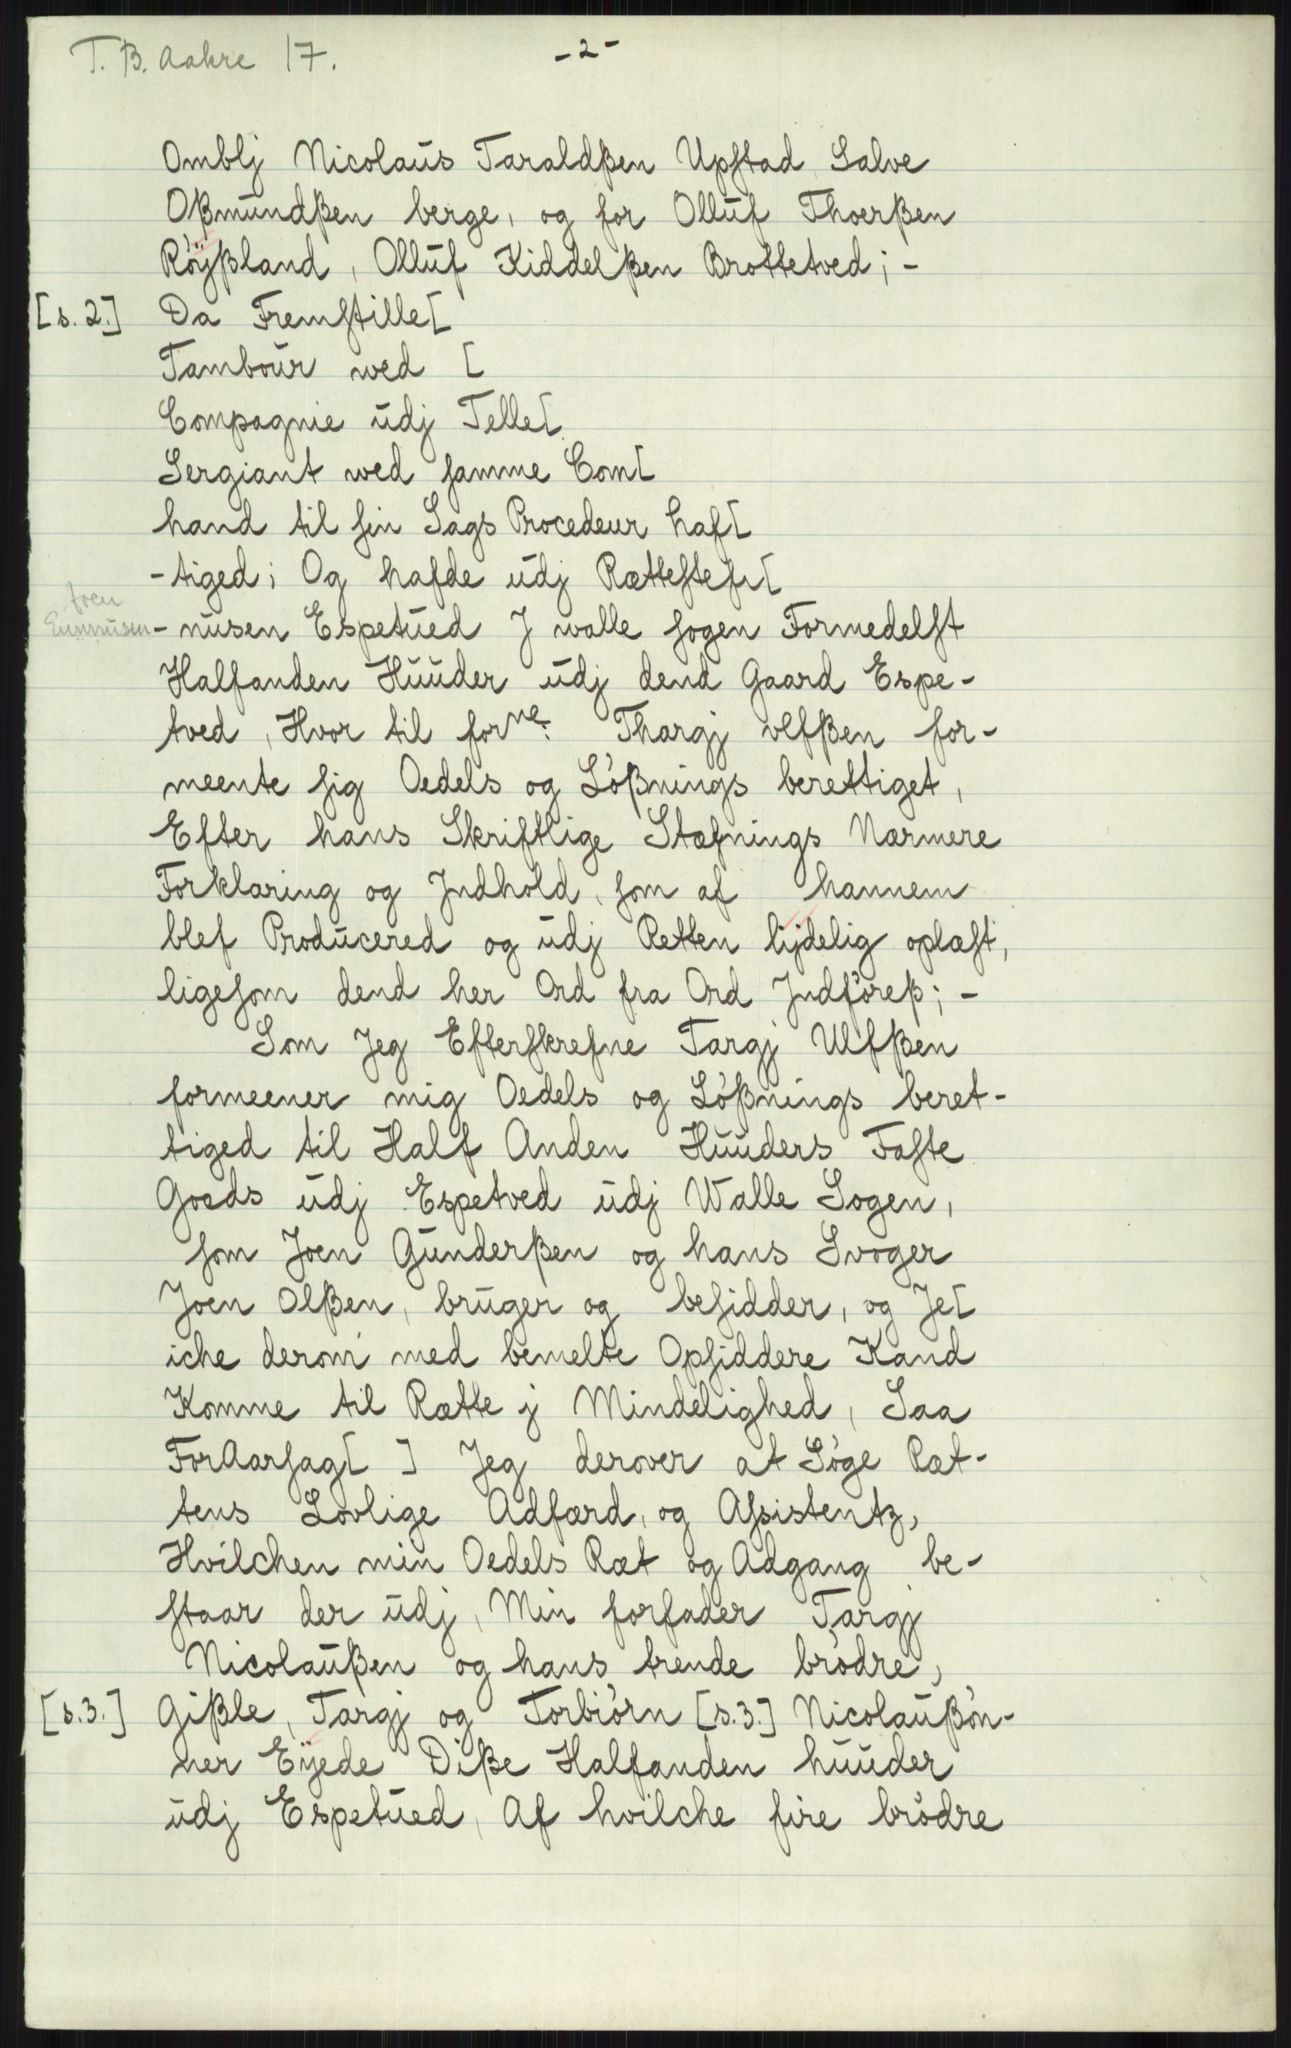 T. B. Aakre 17.
- 2 -
Omblj Nicolaus Taraldßen Upstad, Salve
Oßmundßen berge, og for Olluf Thoerßen
Röÿßland, Olluf Kiddelßen Brottetved; -
[s. 2.] Da Fremstille[
Tambour wed [
Compagnie udj Telle[
Sergiant wed samme Com[
hand til sin Sags Procedeur haf[
-tiged; Og hafde udj Rættestefn[
Joen
Gunnusen - nusen Espetued J walle sogen Formedelst
Halfanden Huuder udj dend Gaard Espe-
tved, Hvor til forne: Thargj Ulfßen for-
meente sig Oedels og Lößnings berettiget,
Efter hans Skriftlige Stæfnings Nærmere
Forklaring og Jndhold, som af hannem
blef Producered og udj Retten lijdelig oplæst,
ligesom dend her Ord fra Ord Jndföreß; -
Som Jeg Efterskrefne Targj Ulfßen
formeener mig Oedels og Lößnings beret-
tiged til Half Anden Huuders Faste
Goeds udj Espetved udj Walle Sogen,
som Joen Gunderßen og hans Svoger
Joen Olßen, bruger og besidder, og Je[
iche derom med bemelte Opsiddere Kand
Komme til Rætte j Mindelighed, Saa
ForAarsag[ ] Jeg derover at Söge Ræt-
tens Lovlige Adfærd, og Assistentz,
Hvilchen min Oedels Ræt og Adgang be-
staar der udj, Min forfader Targj
Nicolaußen og hans trende brödre,
[s.3.] Gißle, Targj og Torbiörn [s.3.] Nicolaußön-
ner Eÿede Diße Halfanden huuder
udj Espetued, Af hvilche fire brödre